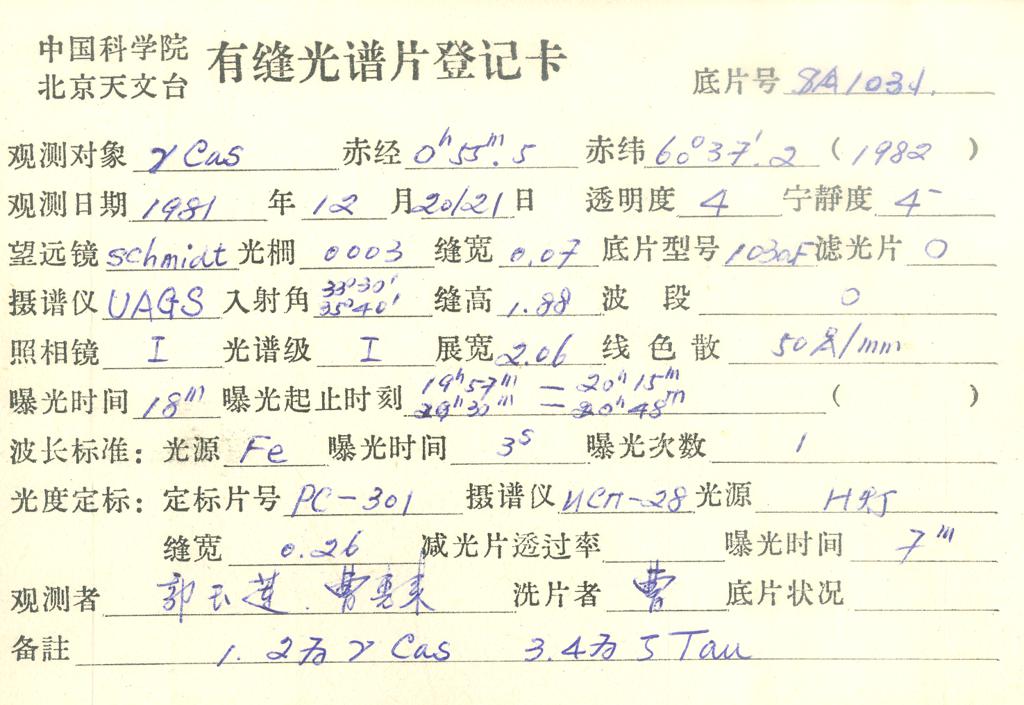 中国科学院
北京天文台
有缝光谱片登记卡
底片号 SA1031.
观测对象 γ Cas 赤经 0ʰ55ᵐ.5 赤纬 60°37′.2 (1982)
观测日期 1981 年 12 月 20/21 日 透明度 4 宁静度 4
望远镜 schmidt 光栅 0003 缝宽 0.07 底片型号 103aF 滤光片 0
摄谱仪 UAGS 入射角 33°30′ 35°40′ 缝高 1.88 波段 0
照相镜 I 光谱级 I 展宽 2.06 线色散 50Å/mm
曝光时间 18ᵐ 曝光起止时刻 19ʰ57ᵐ — 20ʰ15ᵐ ( )
20ʰ30ᵐ — 20ʰ48ᵐ
波长标准: 光源 Fe 曝光时间 3ˢ 曝光次数 1
光度定标: 定标片号 PC-301 摄谱仪 ИСП-28 光源 H灯
缝宽 0.26 减光片透过率 曝光时间 7ᵐ
观测者 郭玉莲. 曹惠来 洗片者 曹 底片状况
备註 1. 2为 γ Cas 3.4为 ζ Tau